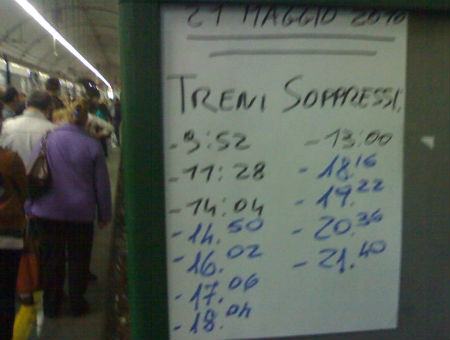 21 MAGGIO 2010
TRENI SOPPRESSI
- 9:52
- 11:28
- 14:04
- 14.50
- 16.02
- 17.06
- 18.04
- 13:00
- 18.16
- 19.22
- 20.36
- 21.40